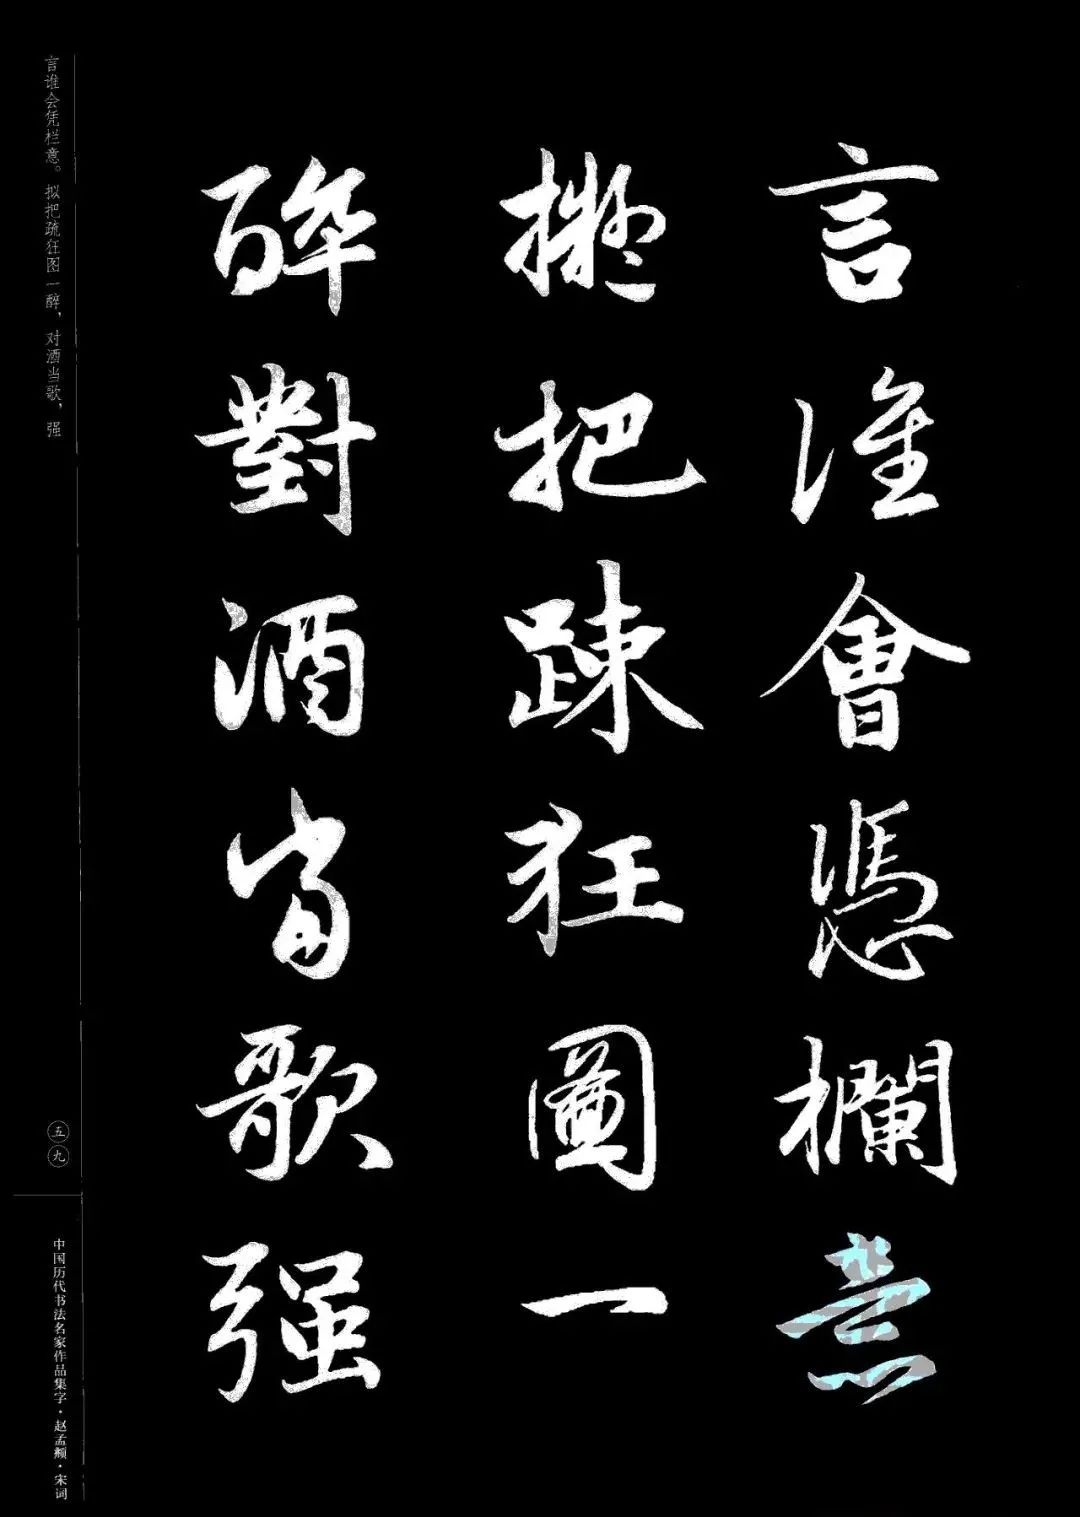 言誰會憑欄意
擬把疎狂圖一
醉對酒當歌强
言谁会凭栏意。拟把疏狂图一醉，对酒当歌，强
五九
中国历代书法名家作品集字·赵孟頫·宋词